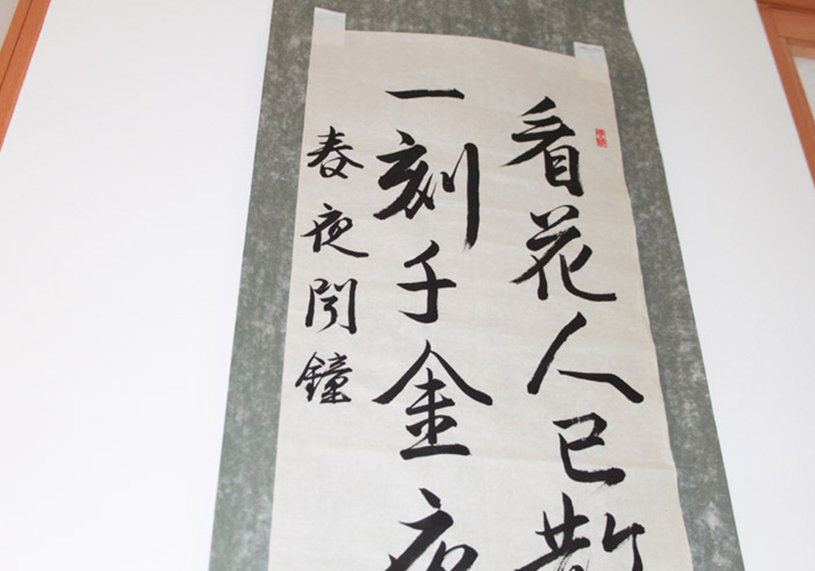 看花人已散
一刻千金夜
春夜聞鐘